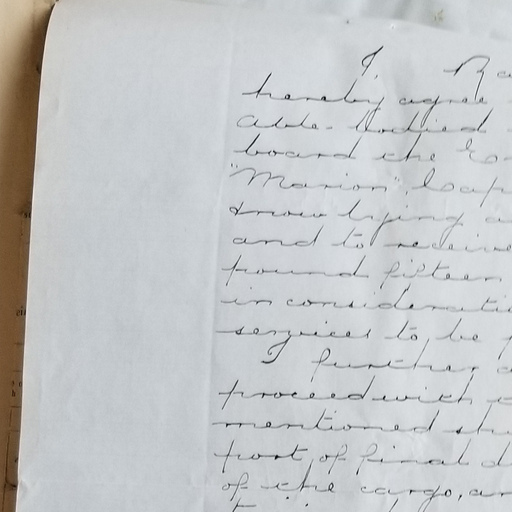 I. Ra
hereby agree
able-bodied
board the
"Marion" Cap
now lying a
and to receive
pound fifteen
in considerati
services to be
I further a
proceed with
mentioned sh
port of final d
of the cargo, an